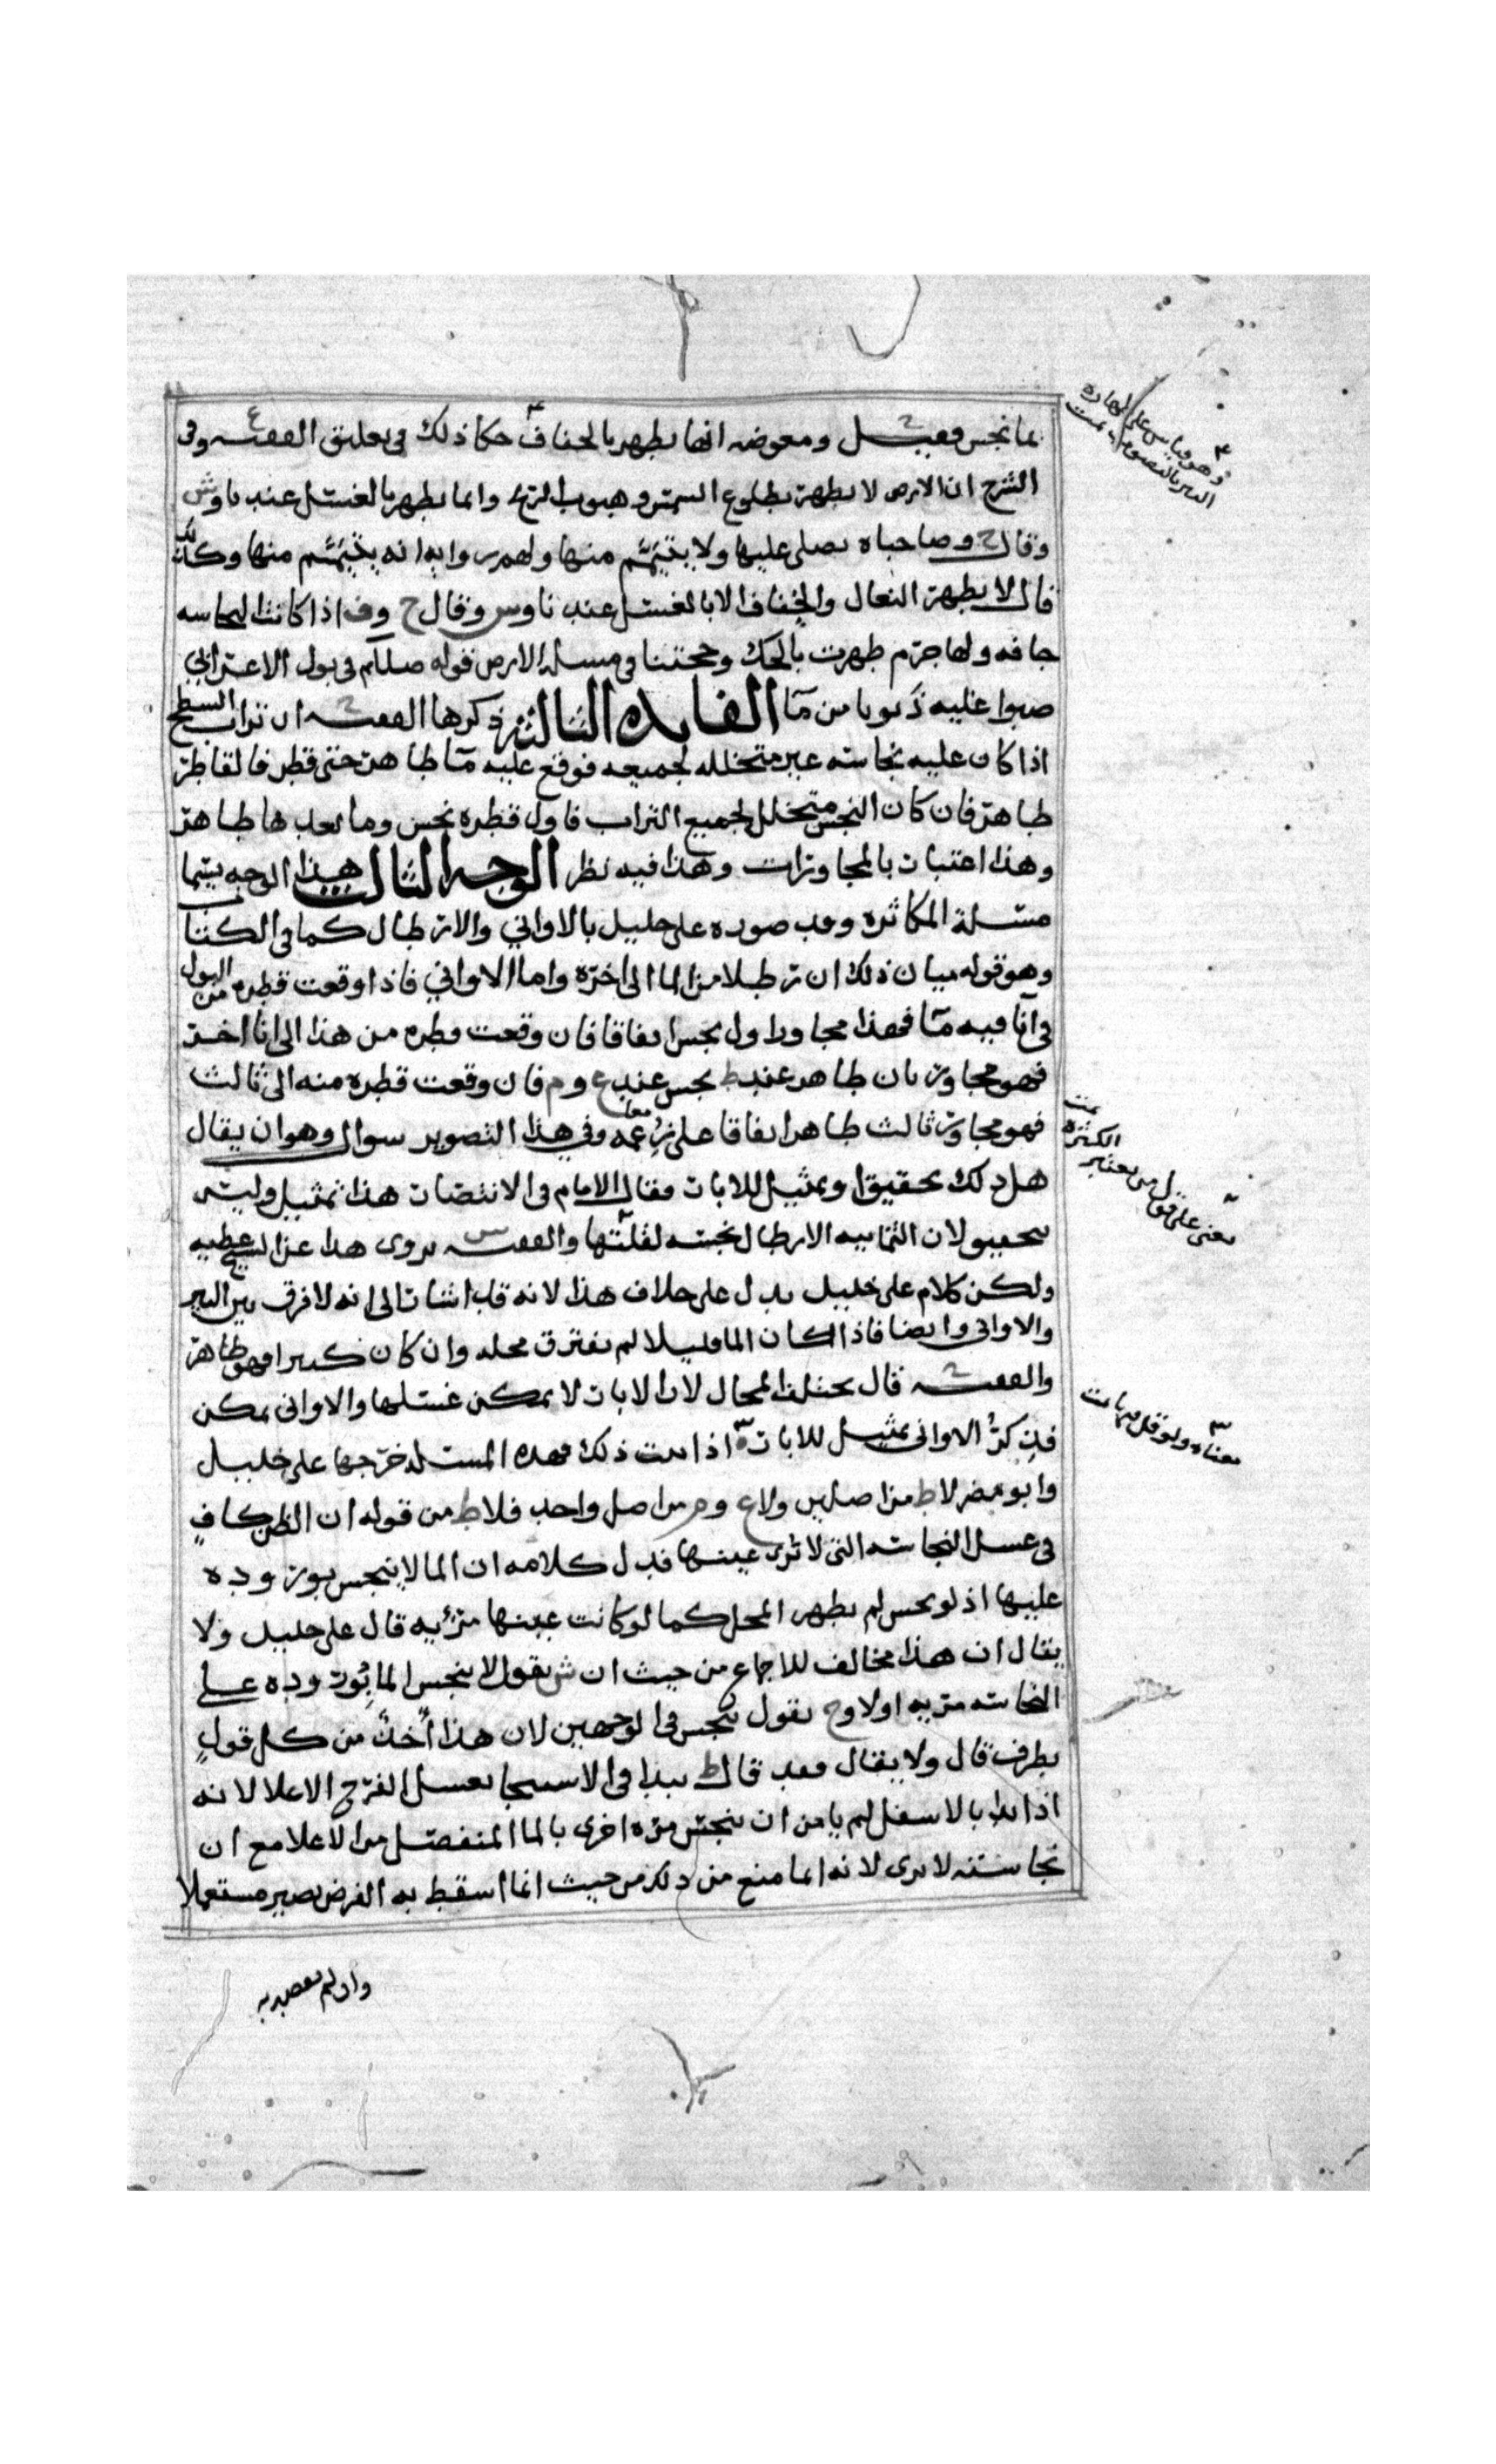 بما نجس فقيل ومعوضه انها تطهر بالجفاف حكا ذلك في تعليق الفقيه ع وفي
الشرح ان الارض لا تطهر بطلوع الشمس وهبوب الريح وانما تطهر بالغسل عندنا وش
وقال ح وصاحباه يصلى عليها ولا يتيمم منها ولهم روايه انه يتيمم منها وكذلك
قال لا يطهر النعال والخفاف الا بالغسل عندنا وس وقال ح وف اذا كانت النجاسه
جافه ولها جرم طهرت بالحك وحجتنا في مسله الارض قوله صللم في بول الاعرابي
صبوا عليه ذنوبا من مآ الفايده الثالثه ذكرها الفقيه ح ان تراب السطح
اذا كان عليه نجاسه غير متخلله لجميعه فوقع عليه مآ طاهر حتى قطر فالقاطر
طاهر فان كان النجس متخلل لجميع التراب فاول قطره نجس وما بعدها طاهر
وهذا اعتبار بالمجاورات وهذا فيه نظر الوجه الثالث هذا الوجه يسما
مسئلة المكاثره وقد صوره علي خليل بالاواني والارطال كما في الكتاب
وهو قوله بيان ذلك ان رطلا من الما الى اخره واما الاواني فاذا وقعت قطره من البول
في انآ فيه مآ فهذا مجاور اول نجس اتفاقا فان وقعت قطره من هذا الى انا اخر
فهو مجاور ثان طاهر عند ط نجس عند ع وم فان وقعت قطره منه الى ثالث
فهو مجاور ثالث طاهر اتفاقا على زعمه معا وفي هذا التصوير سوال وهو ان يقال
هل ذلك تحقيق او تمثيل للابار فقال الامام في الانتصار هذا تمثيل وليس
بتحقيق لان الثمانيه الارطال نجسه لقلتها والفقيه س يروي هذا عن الشيخ عطيه
ولكن كلام علي خليل يدل على خلاف هذا لانه قد اشار الى انه لا فرق بين البير
والاواني وايضا فاذا كان الما قليلا لم يفترق محله وان كان كثيرا فهو طاهر
والفقيه ح قال يختلف المحال لان الابار لا يمكن غسلها والاواني يمكن
فذكر الاواني تمثيل للابار اذا ثبت ذلك فهذه المسئله خرجها علي خليل
وابو مضر لا ط من اصلين ولا ع وم من اصل واحد فلا ط من قوله ان الظن كاف
في غسل النجاسه التي لا ترى عينها فدل كلامه ان الما لا ينجس بوروده
عليها اذ لو نجس لم يطهر المحل كما لو كانت عينها مرئيه قال علي خليل ولا
يقال ان هذا مخالف للاجماع من حيث ان ش يقول لا ينجس الما بوروده على
النجاسه مريه اولا وح يقول ينجس في الوجهين لان هذا اخذ من كل قول
بطرف قال ولا يقال فقد قال ط يبدا في الاستنجا بغسل الفرج الاعلا لانه
اذا بدا بالاسفل لم يامن ان ينجس مره اخرى بالما المنفصل من الاعلا مع ان
نجاسته لا ترى لانه انما منع من ذلك من حيث ان ما اسقط به الفرض يصير مستعملا
وان لم يقصد به
وهو قياس على طهاره
البير بالنضوب تمت
يعني على قول من يعتبر
الكثره
تمت
معناه ولو قل فيها تمت